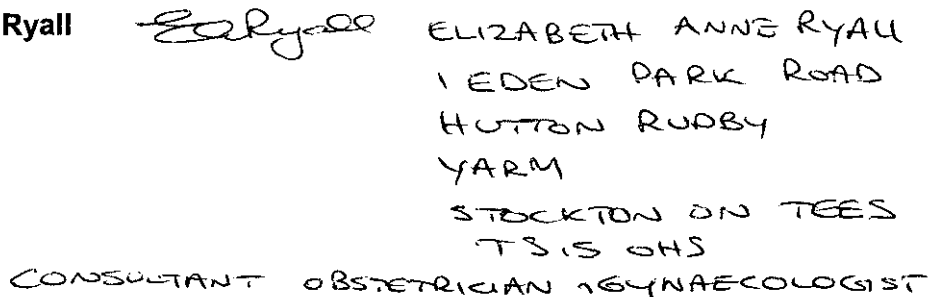 Ryall EARyall ELIZABETH ANNE RYALL
1 EDEN PARK ROAD
HUTTON RUDBY
YARM
STOCKTON ON TEES
TS15 0HS
CONSULTANT OBSTETRICIAN & GYNAECOLOGIST